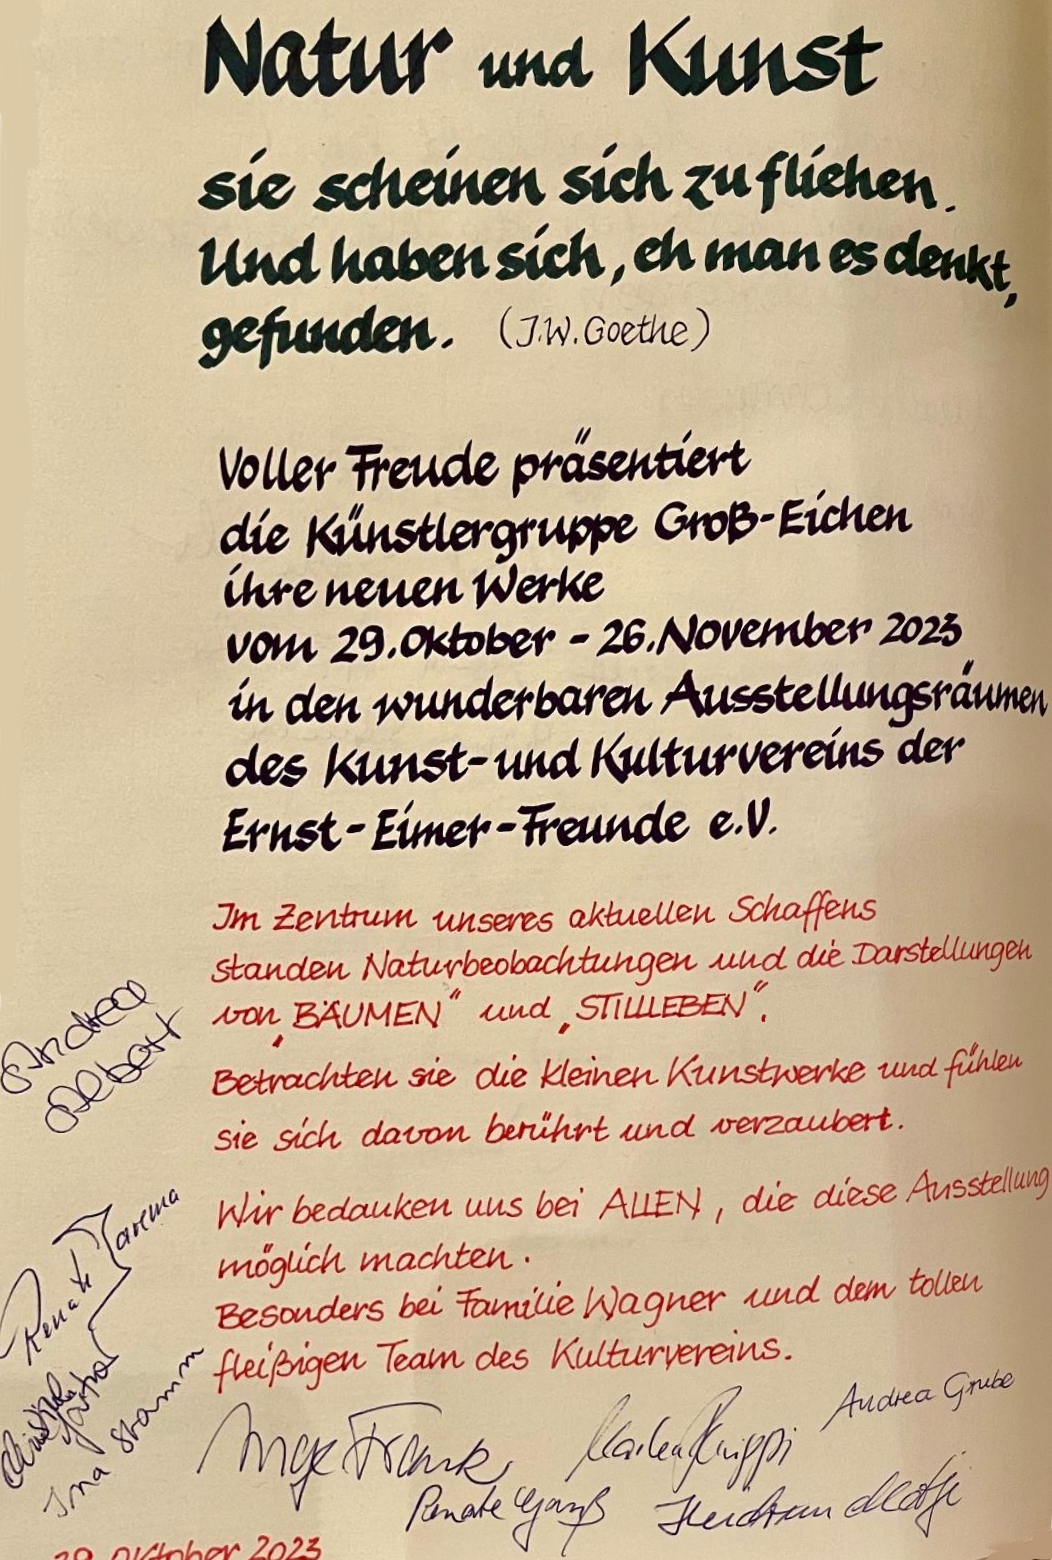 Natur und Kunst
sie scheinen sich zu fliehen.
Und haben sich, eh man es denkt,
gefunden. (J.W. Goethe)
Voller Freude präsentiert
die Künstlergruppe Groß-Eichen
ihre neuen Werke
vom 29. Oktober - 26. November 2023
in den wunderbaren Ausstellungsräumen
des Kunst- und Kulturvereins der
Ernst-Eimer-Freunde e.V.
Im Zentrum unseres aktuellen Schaffens
standen Naturbeobachtungen und die Darstellungen
von „BÄUMEN“ und „STILLLEBEN“.
Betrachten sie die kleinen Kunstwerke und fühlen
sie sich davon berührt und verzaubert.
Wir bedanken uns bei ALLEN, die diese Ausstellung
möglich machten.
Besonders bei Familie Wagner und dem tollen
fleißigen Team des Kulturvereins.
Andrea
Albert
Renate
Ina Stamm
Inge Frank
Andrea Grube
Renate
29. Oktober 2023